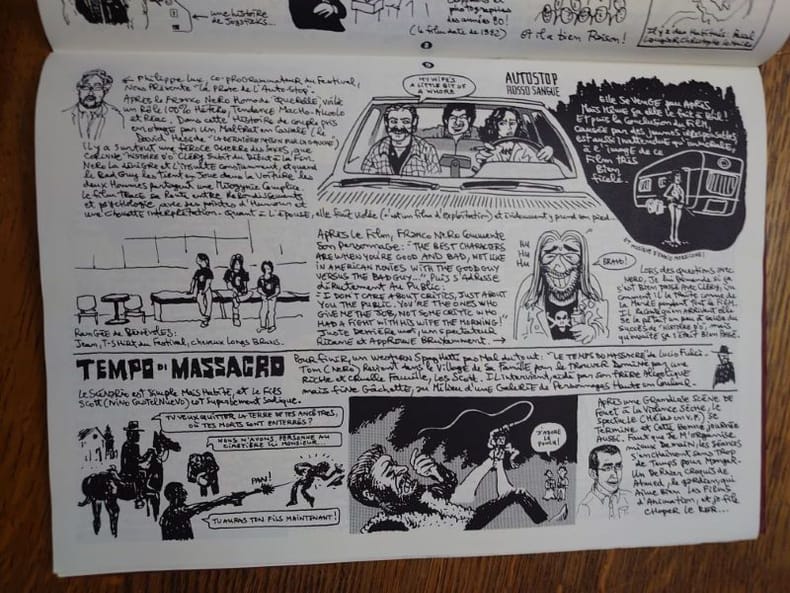 une histoire
de Joysticks...
photographies
des années 80!
(le film date de 1982)
et il a bien Raison!
Il y a des Habitués: Pascal
8
9
← Philippe Lux, co-programmateur du Festival,
Nous Présente "La Proie de l'Auto-Stop".
Après le Franc Nero Homo de "Querelle", voilà
un Rôle 100% Hétéro, Tendance Macho-Alcoolo
et Réac. Dans cette Histoire de couple pris
en otage par un Malfrat en Cavale (le
David Hess de "La Dernière Maison sur la Gauche")
Il y a surtout une féroce Guerre des Sexes, que
Corinne "Histoire d'O" Clery subit du Début à la Fin.
Nero la dénigre et l'insulte constamment, et quand
le Bad Guy les tient en Joue dans la Voiture, les
deux Hommes partagent une Misogynie Complice.
Le film trace sa Route entre Rebondissements
et psychologie avec des pointes d'Humour et
une Chouette interprétation. Quant à l'épouse, elle finit violée (c'est un film d'exploitation) et évidemment y prend son pied...
MY WIFE'S
A LITTLE BIT OF
A WHORE
AUTOSTOP
ROSSO SANGUE
Elle se venge peu après
Mais Même ça elle le fait à Poil!
Et puis la Conclusion du Film
causée par des jeunes irresponsables
est aussi inattendue qu'immorale,
à l'image de ce
Film très
Bien
ficelé.
ET MUSIQUE D'ENNIO MORRICONE!
Rangée de Bénévoles:
Jean, T-Shirt du Festival, cheveux Longs Bruns.
Après le Film, Franco Nero Commente
Son personnage: "THE BEST CHARACTERS
ARE WHEN YOU'RE GOOD AND BAD, NOT LIKE
IN AMERICAN MOVIES WITH THE GOOD GUY
VERSUS THE BAD GUY...", Puis s'Adresse
Directement Au Public:
"I DON'T CARE ABOUT CRITICS, JUST ABOUT
YOU THE PUBLIC. YOU'RE THE ONES WHO
GIVE ME THE JOB, NOT SOME CRITIC WHO
HAD A FIGHT WITH HIS WIFE THE MORNING!"
Juste Derrière Moi, un spectateur
Ricane et Approuve Bruyamment. →
HU
HU
HU
BRAVO!
Lors des questions avec
Nero, je lui demande si ça
s'est Bien passé avec Clery, vu
comment il la traite comme de
la Merde pendant tout le Film.
qu'humaine ça s'était Bien passé.
TEMPO DI MASSACRO
Pour finir, un western Spaghetti pas Mal du tout: "LE TEMPS DU MASSACRE" de Lucio Fulci.
Tom (Nero) Revient dans le Village de Sa Famille pour le Trouver Dominé par une
Riche et Cruelle Famille, les Scott. Il Intervient, aidé par son frère Alcoolique
mais fine Gâchette, au Milieu d'une Galerie de Personnages Haute en Couleur.
Le Scénario est Simple Mais Habité, et Le Fils
Scott (Nino Castelnuovo) est Superbement Sadique.
TU VEUX QUITTER LA TERRE DE TES ANCÊTRES,
OÙ TES MORTS SONT ENTERRÉS?
NOUS N'AVONS PERSONNE AU
CIMETIÈRE ICI MONSIEUR...
PAN!
TU AURAS TON FILS MAINTENANT!
J'ADORE
LE
Après une Géniale Scène de
Fouet à la Violence Sèche, le
Spectacle (Hélas en V.F.) se
Termine et Cette Bonne journée
Aussi. Faut que je M'organise
mieux Demain, les séances
s'enchainent sans trop
de Temps pour Manger.
Un Dernier Croquis de
Ahmed, le gardien, qui
Aime Bien les Films
d'Animation, et je file
CHOPER LE RER...